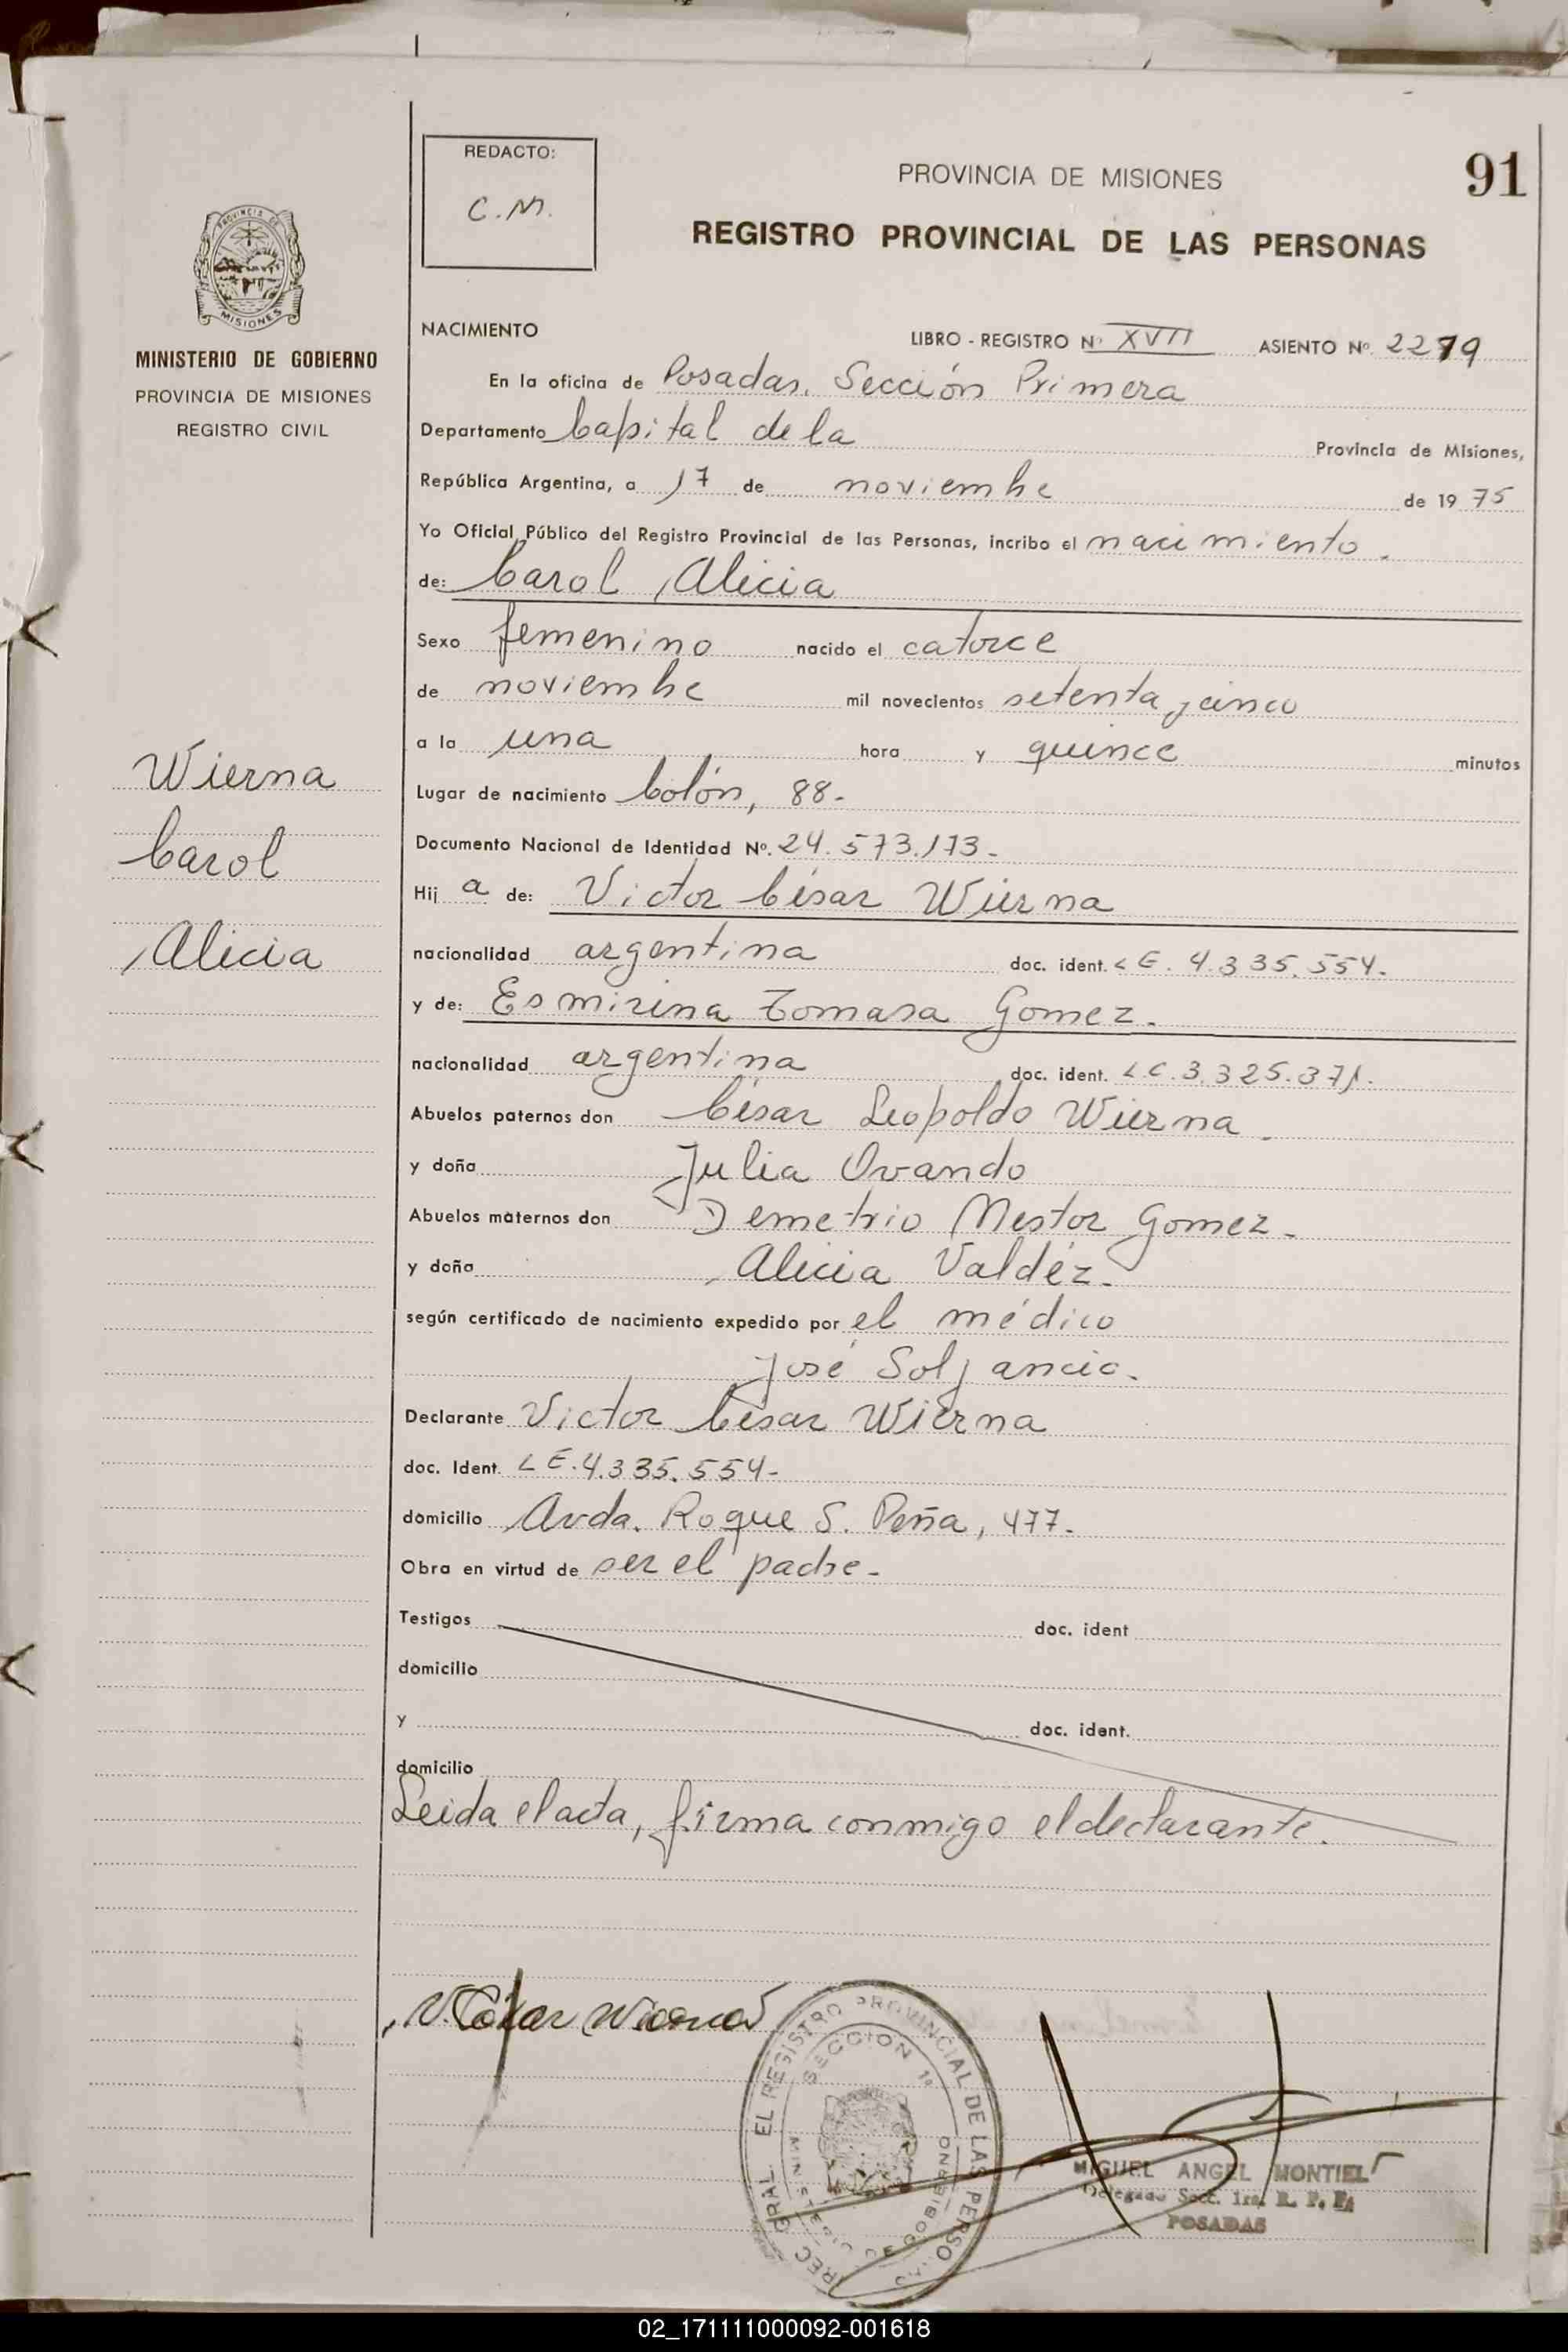 91
REDACTO:
C.M.
PROVINCIA DE MISIONES
REGISTRO PROVINCIAL DE LAS PERSONAS
PROVINCIA DE
MISIONES
MINISTERIO DE GOBIERNO
PROVINCIA DE MISIONES
REGISTRO CIVIL
Wierna
Carol
Alicia
NACIMIENTO LIBRO - REGISTRO Nº XVII ASIENTO Nº 2279
En la oficina de Posadas. Sección Primera
Departamento Capital de la Provincia de Misiones,
República Argentina, a 17 de noviembre de 1975
Yo Oficial Público del Registro Provincial de las Personas, incribo el nacimiento.
de: Carol Alicia
Sexo femenino nacido el catorce
de noviembre mil novecientos setenta y cinco
a la una hora y quince minutos
Lugar de nacimiento Colón, 88-
Documento Nacional de Identidad Nº. 24.573.173-
Hij a de: Victor César Wierna
nacionalidad argentina doc. ident. LE. 4.335.554.
y de: Esmirina Tomasa Gomez.
nacionalidad argentina doc. ident. LC. 3.325.371.
Abuelos paternos don César Leopoldo Wierna.
y doña Julia Ovando
Abuelos maternos don Demetrio Nestor Gomez-
y doña Alicia Valdéz.
según certificado de nacimiento expedido por el médico
José
Declarante Victor César Wierna
doc. Ident. LE. 4.335.554-
domicilio Avda. Roque S. Peña, 477.
Obra en virtud de ser el padre-
Testigos doc. ident
domicilio
y doc. ident.
domicilio
Leida el acta, firma conmigo el declarante.
V. César Wierna
GRAL. EL REGISTRO PROVINCIAL DE LAS PERSO
SECCION 1ª
MINISTERIO DE GOBIERNO
MIGUEL ANGEL MONTIEL
Delegado Secc. 1ra. R. P. P.
POSADAS
02_171111000092-001618